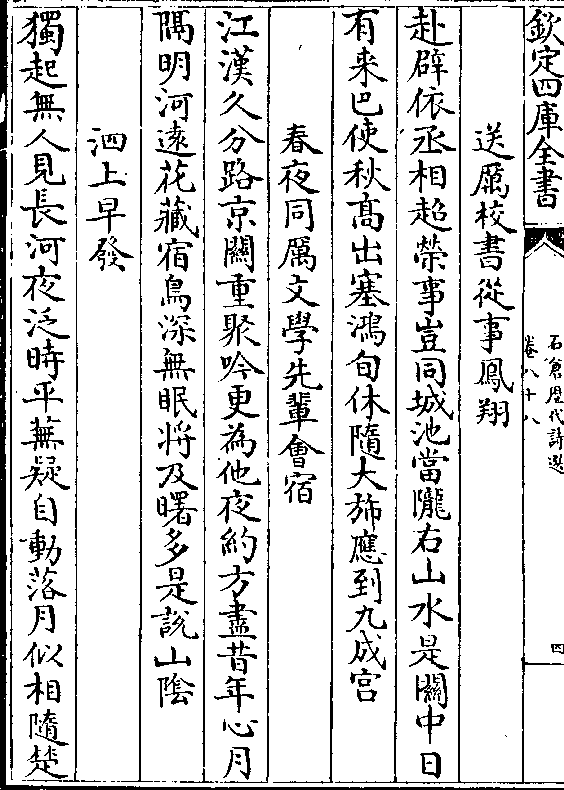 欽定四庫全書
石倉歷代詩選
卷八十八
四
送厲校書從事鳳翔
赴辟依丞相超榮事豈同城池當隴右山水是關中日
有来巴使秋髙出塞鴻旬休隨大斾應到九成宫
春夜同厲文學先輩會宿
江漢久分路京關重聚吟更為他夜約方盡昔年心月
隔明河逺花藏宿鳥深無眠将及曙多是説山隂
泗上早發
獨起無人見長河夜泛時平蕪疑自動落月似相隨楚